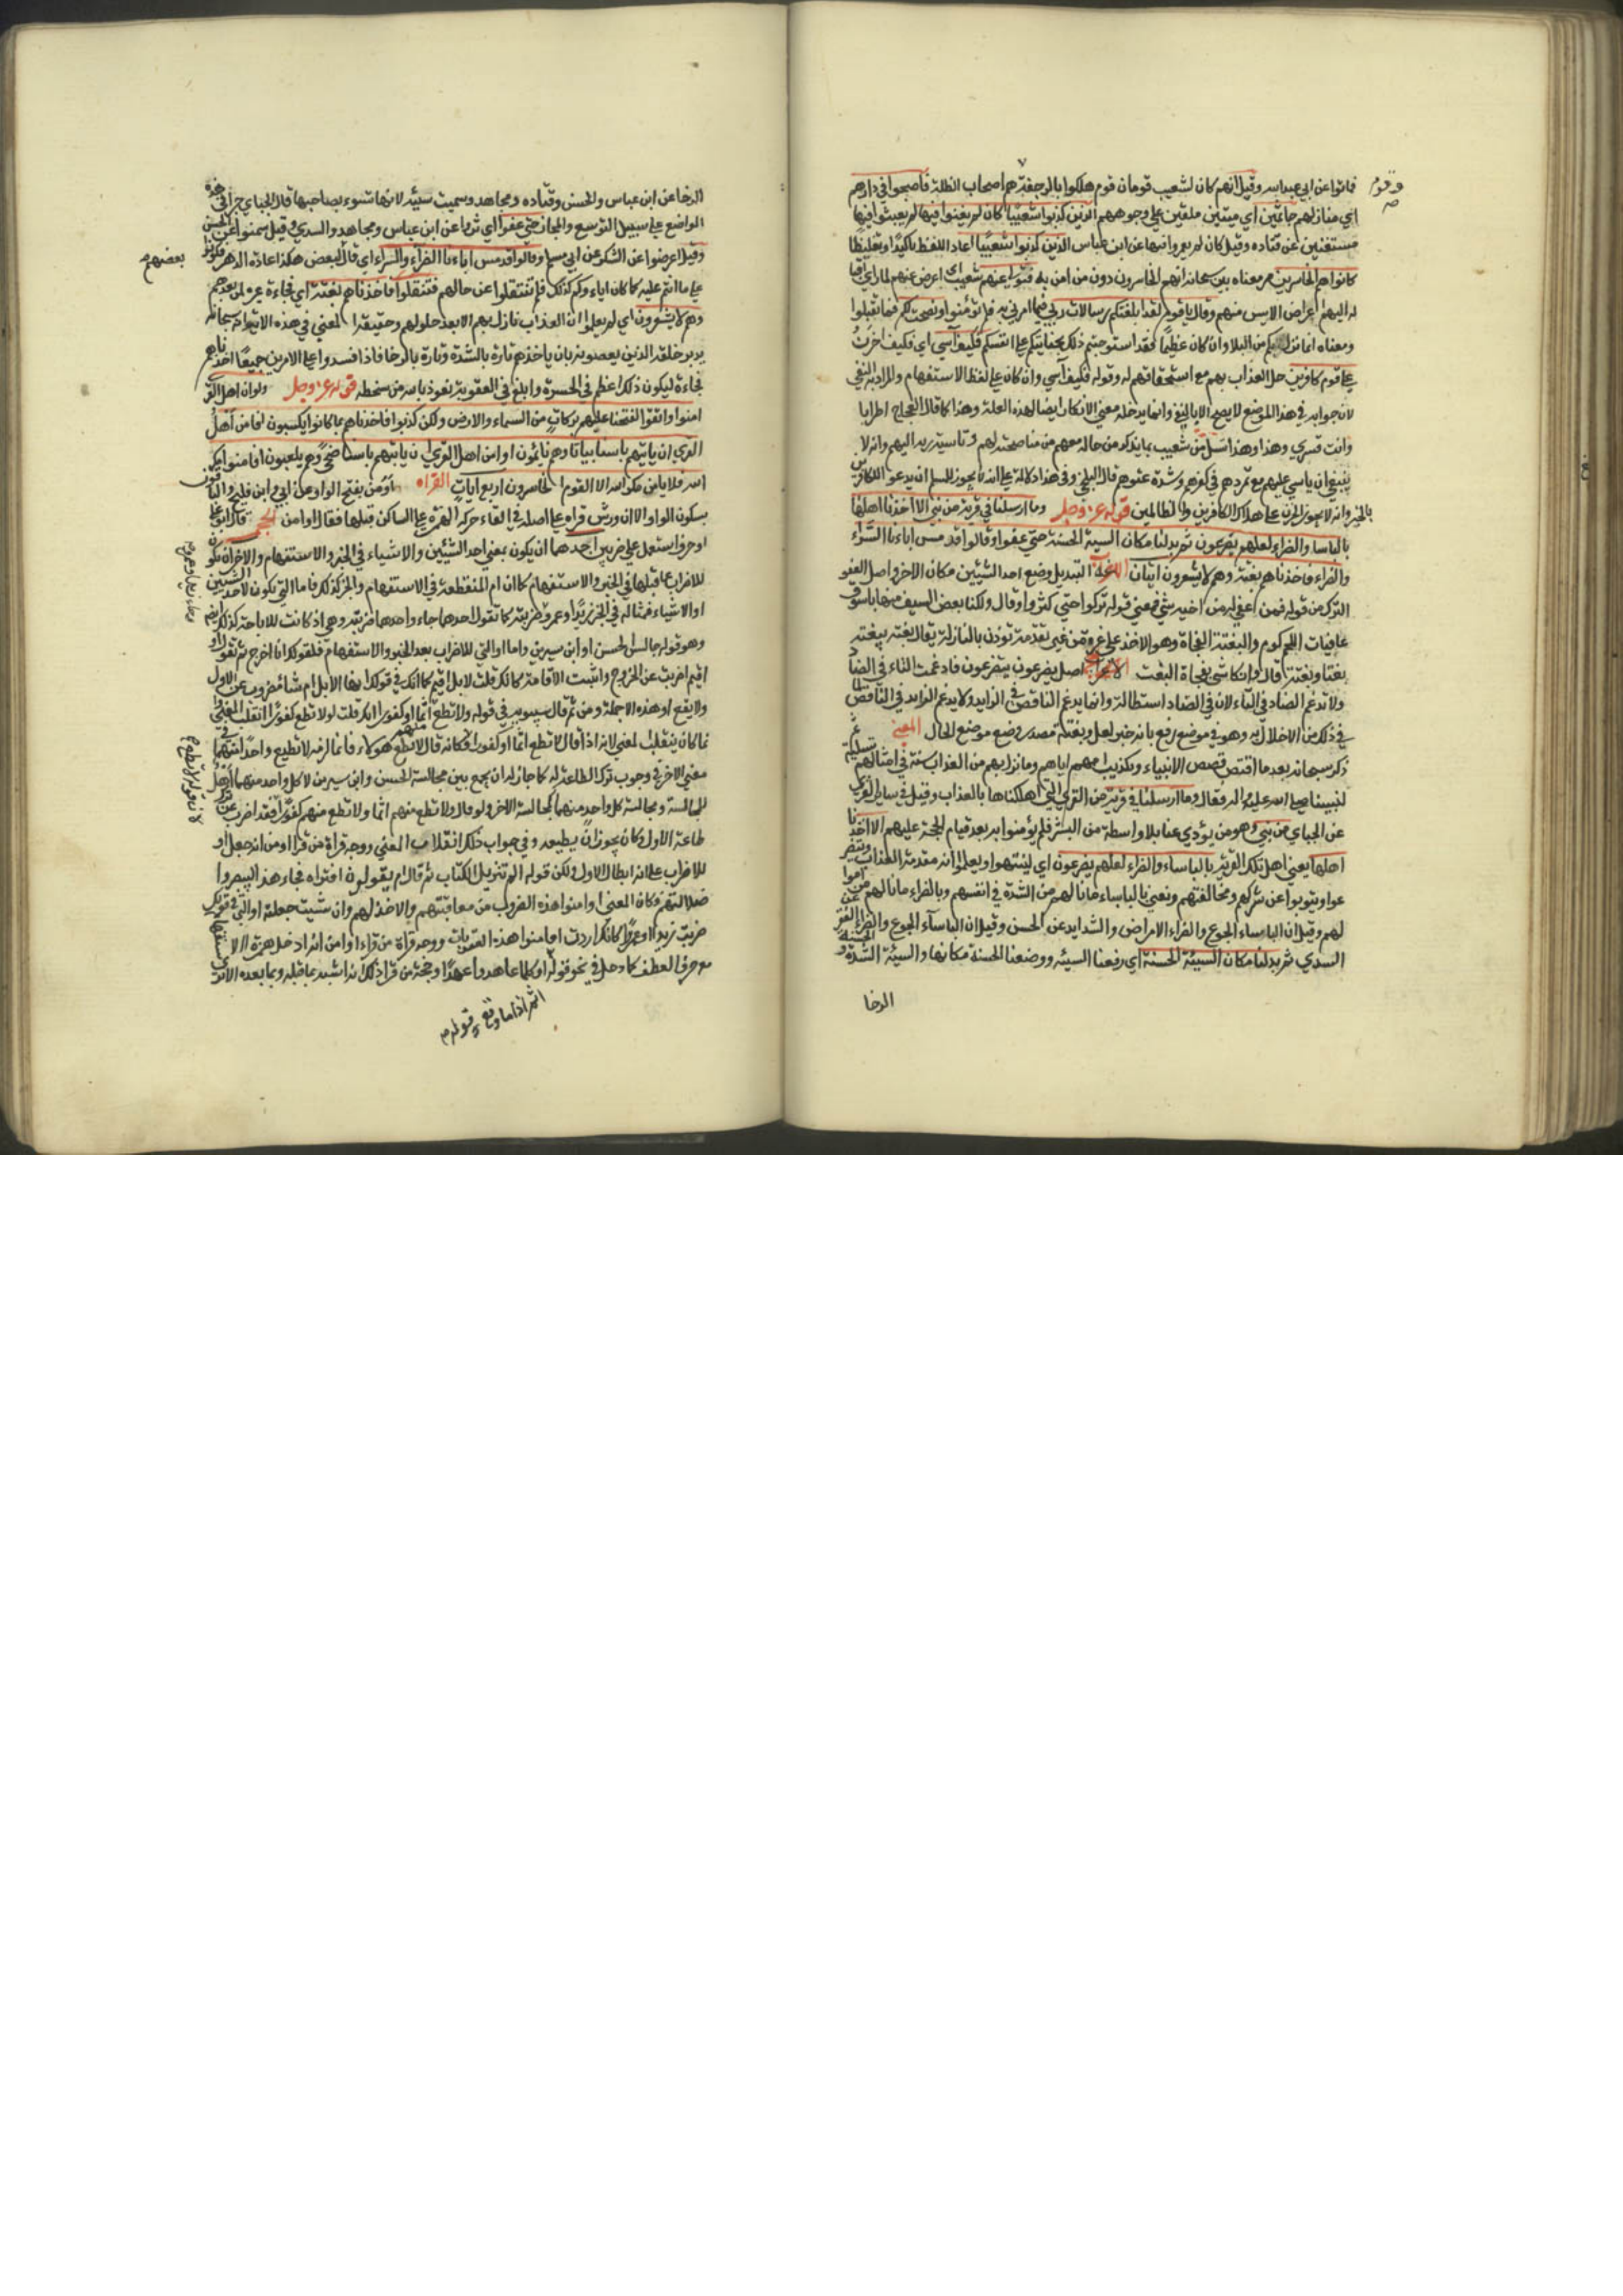 فماتوا عن ابي عبد الله وقيل انهم كان لشعيب قومان قوم هلكوا بالرجفة وهم اصحاب الظلة فاصبحوا في دارهم
وقوم
اي منازلهم جاثمين اي ميتين ملقين على وجوههم الذين كذبوا شعيبا كان لم يغنوا فيها اي لم يعيشوا فيها
مستغنين عن قتاده وقيل كان لم يعمروا فيها عن ابن عباس الذين كذبوا شعيبا اعاد اللفظ تاكيدا وتغليظا
كانوا هم الخاسرين معناه بين سبحانه انهم الخاسرون دون من امن به فتولى عنهم شعيب اي اعرض عنهم لما راي اقبا
له اليهم اعراض الايس منهم وقال يا قوم لقد ابلغتكم رسالات ربي فيما امرني به فلم تؤمنوا ونصحت لكم فما تقبلوا
ومعناه انما نزل بكم من البلا وان كان عظيما فقد استوجبتم ذلك بجنايتكم على انفسكم فكيف آسي اي فكيف احزن
على قوم كافرين حل العذاب بهم مع استحقاقهم له وقوله فكيف آسي وان كان على لفظ الاستفهام والمراد به النفي
لان جوابه في هذا الموضع لا يصح الا بالنفي وانما يدخله معنى الانكار ايضا لهذه العلة وهذا كما قال العجاج اطربا
وانت قنسري وهذا وهذا تسل من شعيب بما يذكر من حاله معهم من مناصحته لهم وتاسية ربه اليهم وانه لا
ينبغي ان ياسي عليهم مع تمردهم في كفرهم وشدة عتوهم قال البلخي وفي هذا دلالة على انه لا يجوز للمسلم ان يدعو للكافرين
بالخير وانه لا يجوز الحزن على هلاك الكافرين والظالمين قوله عز وجل وما ارسلنا في قرية من نبي الا اخذنا اهلها
بالباسا والضراء لعلهم يضرعون ثم بدلنا مكان السيئة الحسنة حتى عفوا وقالوا قد مس اباءنا السراء
والضراء فاخذناهم بغتة وهم لا يشعرون ايتان اللغة التبديل وضع احد الشيئين مكان الاخر واصل العفو
الترك من قوله فمن عفي له من اخيه شيء فمعنى قوله تركوا حتى كثروا وقال ولكنا بعض السيف منها باسوق
عافيات اللحم كوم والبغتة الفجاة وهو الاخذ على غرة من غير تقدمة تؤذن بالنازلة يقال بغته يبغته
بغتا وبغتة قال وانكا شيء يفجاك البغت الاعراب اصل يضرعون يتضرعون فادغمت التاء في الضاد
ولا تدغم الضاد في التاء لان في الضاد استطالة وانما يدغم الناقص في الزايد ولا يدغم الزايد في الناقص
في ذلك من الاخلال به وهو في موضع رفع بانه خبر لعل وبغتة مصدر وضع موضع الحال المعنى
ذكر سبحانه بعد ما اقتص قصص الانبياء وتكذيب اممهم اياهم وما نزل بهم من العذاب سنته في امثالهم تسلية
لنبينا صلى الله عليه واله فقال وما ارسلنا في قرية من القرى التي اهلكناها بالعذاب وقيل في ساير القرى
عن الجباي من نبي وهو من يؤدي عنا بلا واسطة من البشر فلم يؤمنوا به بعد قيام الحجة عليهم الا اخذنا
اهلها يعني اهل تلك القرية بالباساء والضراء لعلهم يضرعون اي لينتهوا ويعلموا انه مقدمة العذاب ويتضر
عوا ويتوبوا عن شركهم ومخالفتهم ونعني بالباساء ما نالهم من الشدة في انفسهم وبالضراء ما نالهم من اموا
لهم وقيل ان الباساء الجوع والضراء الامراض والشدايد عن الحسن وقيل ان الباسآء الجوع والضراء الفقر عن
السدي ثم بدلنا مكان السيئة الحسنة اي رفعنا السيئة ووضعنا الحسنة مكانها والسيئة الشدة والحسنة
الرخا
الرخا عن ابن عباس والحسن وقتاده ومجاهد وسميت سيئة لانها تسوء صاحبها قال الجباي جرى في هذه
المواضع على سبيل التوسع والمجاز حتى عفوا اي كثروا عن ابن عباس ومجاهد والسدي وقيل سمنوا عن الحسن
وقيل اعرضوا عن الشكر عن ابي مسلم وقالوا قد مس اباءنا الضراء والسراء اي قال بعضهم لبعض هكذا عادة الدهر فكونوا
بعضهم
على ما انتم عليه كما كان اباءكم كذلك فلم ينتقلوا عن حالهم فتنتقلوا فاخذناهم بغتة اي فجاءة عبرة لمن بعدهم
وهم لا يشعرون اي لم يعلموا ان العذاب نازل بهم الا بعد حلوله وحقيقة المعنى في هذه الاية انه سبحانه
يدبر خلقه الذين يعصونه بان ياخذهم تارة بالشدة وتارة بالرخا فاذا فسدوا على الامرين جميعا اخذناهم
فجاءة ليكون ذلك اعظم في الحسرة وابلغ في العقوبة نعوذ بالله من سخطه قوله عز وجل ولو ان اهل القرى
امنوا واتقوا لفتحنا عليهم بركات من السماء والارض ولكن كذبوا فاخذناهم بما كانوا يكسبون افامن اهل
القرى ان ياتيهم باسنا بياتا وهم نائمون اوامن اهل القرى ان ياتيهم باسنا ضحى وهم يلعبون افامنوا مكر
الله فلا يامن مكر الله الا القوم الخاسرون اربع ايات القراه اوامن بفتح الواو عن ابي وابن فليح والباقون
بسكون الواو الا ان ورش قراه على اصله في القاء حركة الهمزة على الساكن قبلها فقال اوامن الحجه قال ابو علي
او حرف استعمل على ضربين احدهما ان يكون بمعنى احد الشيئين والاشياء في الخبر والاستفهام والاخر ان يكون
للاضراب عما قبلها في الخبر والاستفهام كما ان ام المنقطعة في الاستفهام والخبر كذلك فاما التي تكون لاحد الشيئين
او الاشياء فمثاله في الخبر زيدا وعمرو ضربته كما تقول احدهما جاء واحدهما ضربته وهي اذا كانت للاباحة كذلك ايضا
وهو قوله جالس الحسن او ابن سيرين واما او التي للاضراب بعد الخبر والاستفهام فكقولك انا اخرج ثم تقول او
اقيم اضربت عن الخروج واثبت الاقامة كانك قلت لا بل اقيم كما انك في قولك انها لابل ام شاء مضروب عن الاول
ولا يقع او هذه الا جملة ومن ثم قال سيبويه في قوله ولا تطع اثما او كفورا انك قلت لو لا تطع كفورا انقلب المعنى
معنى الاخر في وجوب ترك الطاعة له كما جاز له ان يجمع بين مجالسة الحسن وابن سيرين لان كل واحد منهما اهل
للمجالسة ومجالسة كل واحد منهما كمجالسة الاخر ولو قال ولا تطع منهم اثما ولا تطع منهم كفورا فقد اضرب عن ترك
طاعة الاول وكان يجوز ان يطيعه وفي جواب ذلك انقلاب المعنى ووجه قراة من قرا اوامن انه جعل او
للاضراب على انه ابطال الاول ولكن قوله الم تنزيل الكتاب ثم قال ام يقولون افتراه فجاء هذا ليبصروا
ضلالتهم فكان المعنى اوامنوا هذه الضروب من معاقبتهم والاخذ لهم وان شيت جعلته او التي في قولك
ضربت زيدا او عمرا كانك اردت افامنوا هذه العقوبات ووجه قراة من قراء اوامن انه ادخل همزة الاستفهام
مع حرف العطف كما دخل في نحو قوله او كلما عاهدوا عهدا وحجة من قرا ذلك انه اشبه بما قبله وبما بعده الاترى
اثم اذا ما وقع وقوله